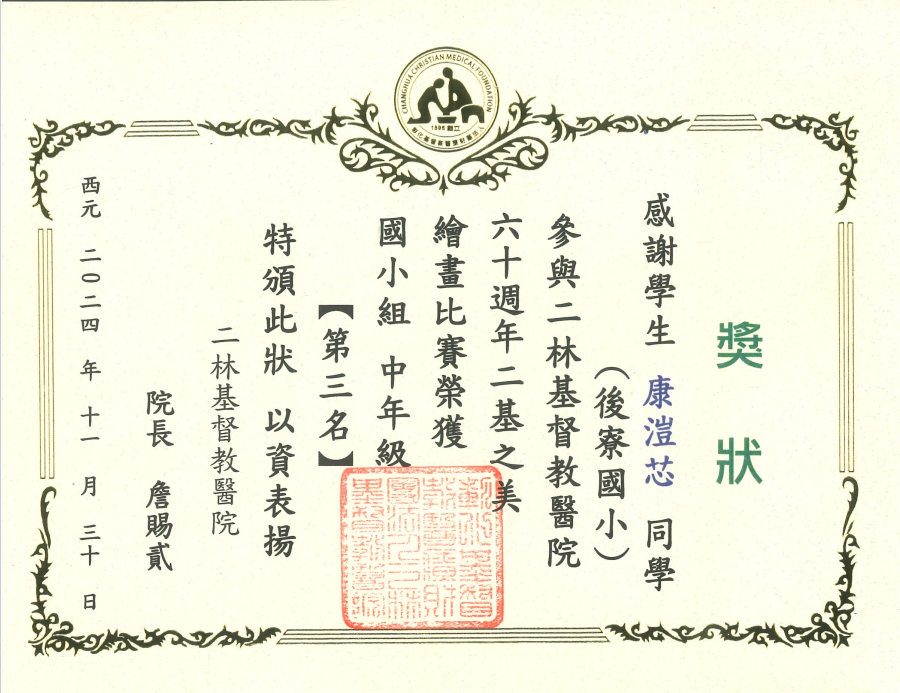 CHANGHUA CHRISTIAN MEDICAL FOUNDATION
1896 創立
獎狀
感謝學生 康溰芯 同學
（後寮國小）
參與二林基督教醫院
六十週年二基之美
繪畫比賽榮獲
國小組 中年級
【第三名】
特頒此狀 以資表揚
二林基督教醫院
院長 詹賜貳
西元 二〇二四 年 十一 月 三十 日